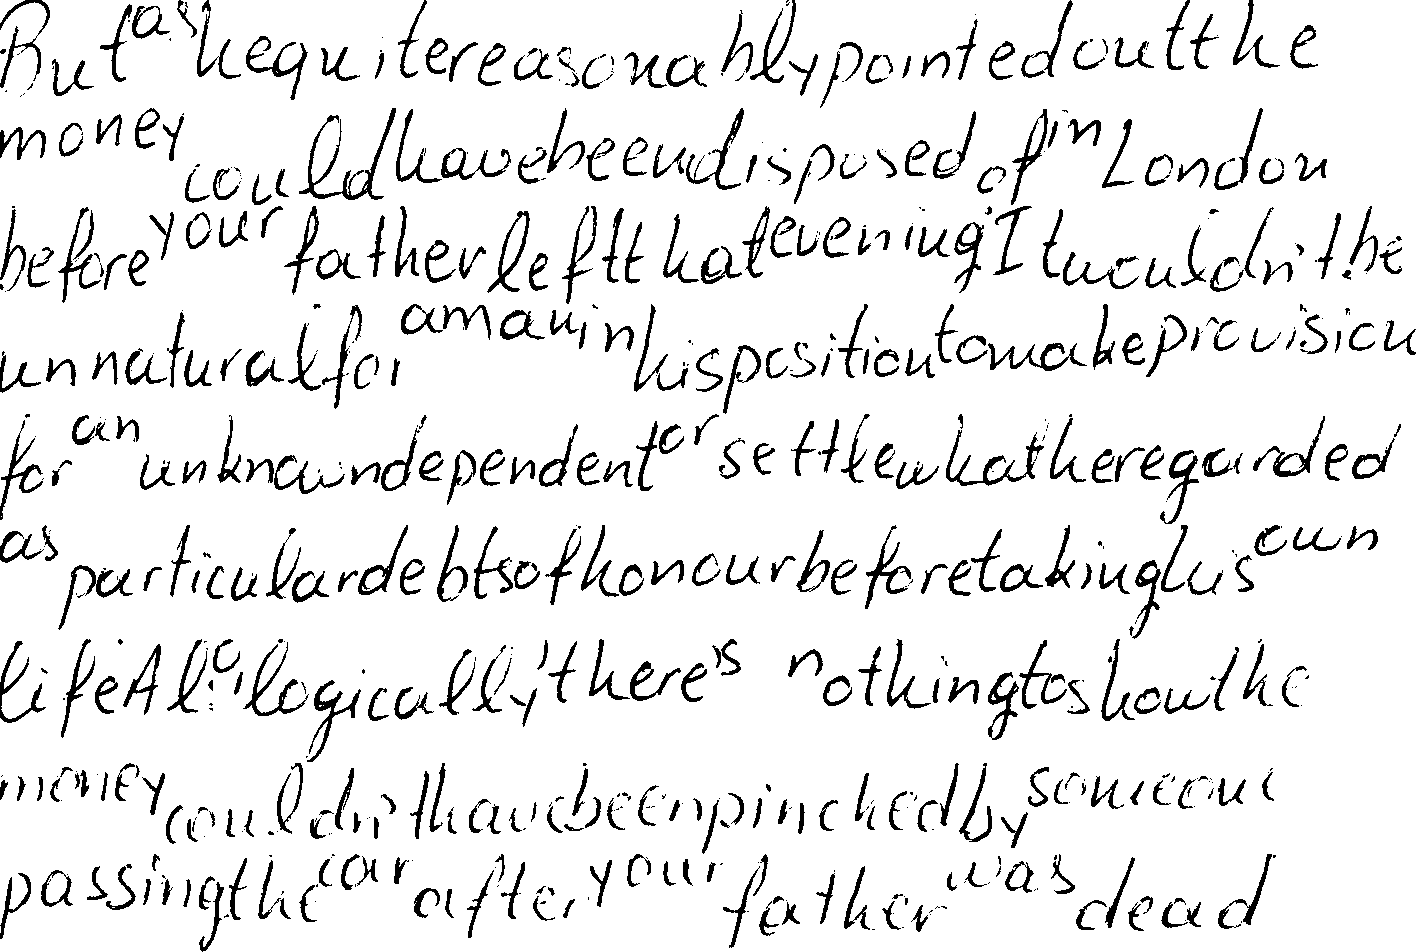 But as he quite reasonably pointed out the
money could have been disposed of in London
before your father left that evening. It wouldn't be
unnatural for a man in his position to make provision
for an unknown dependent or settle what he regarded
as particular debts of honour before taking his own
life. Also, logically, there's nothing to show the
money couldn't have been pinched by someone
passing the car after your father was dead